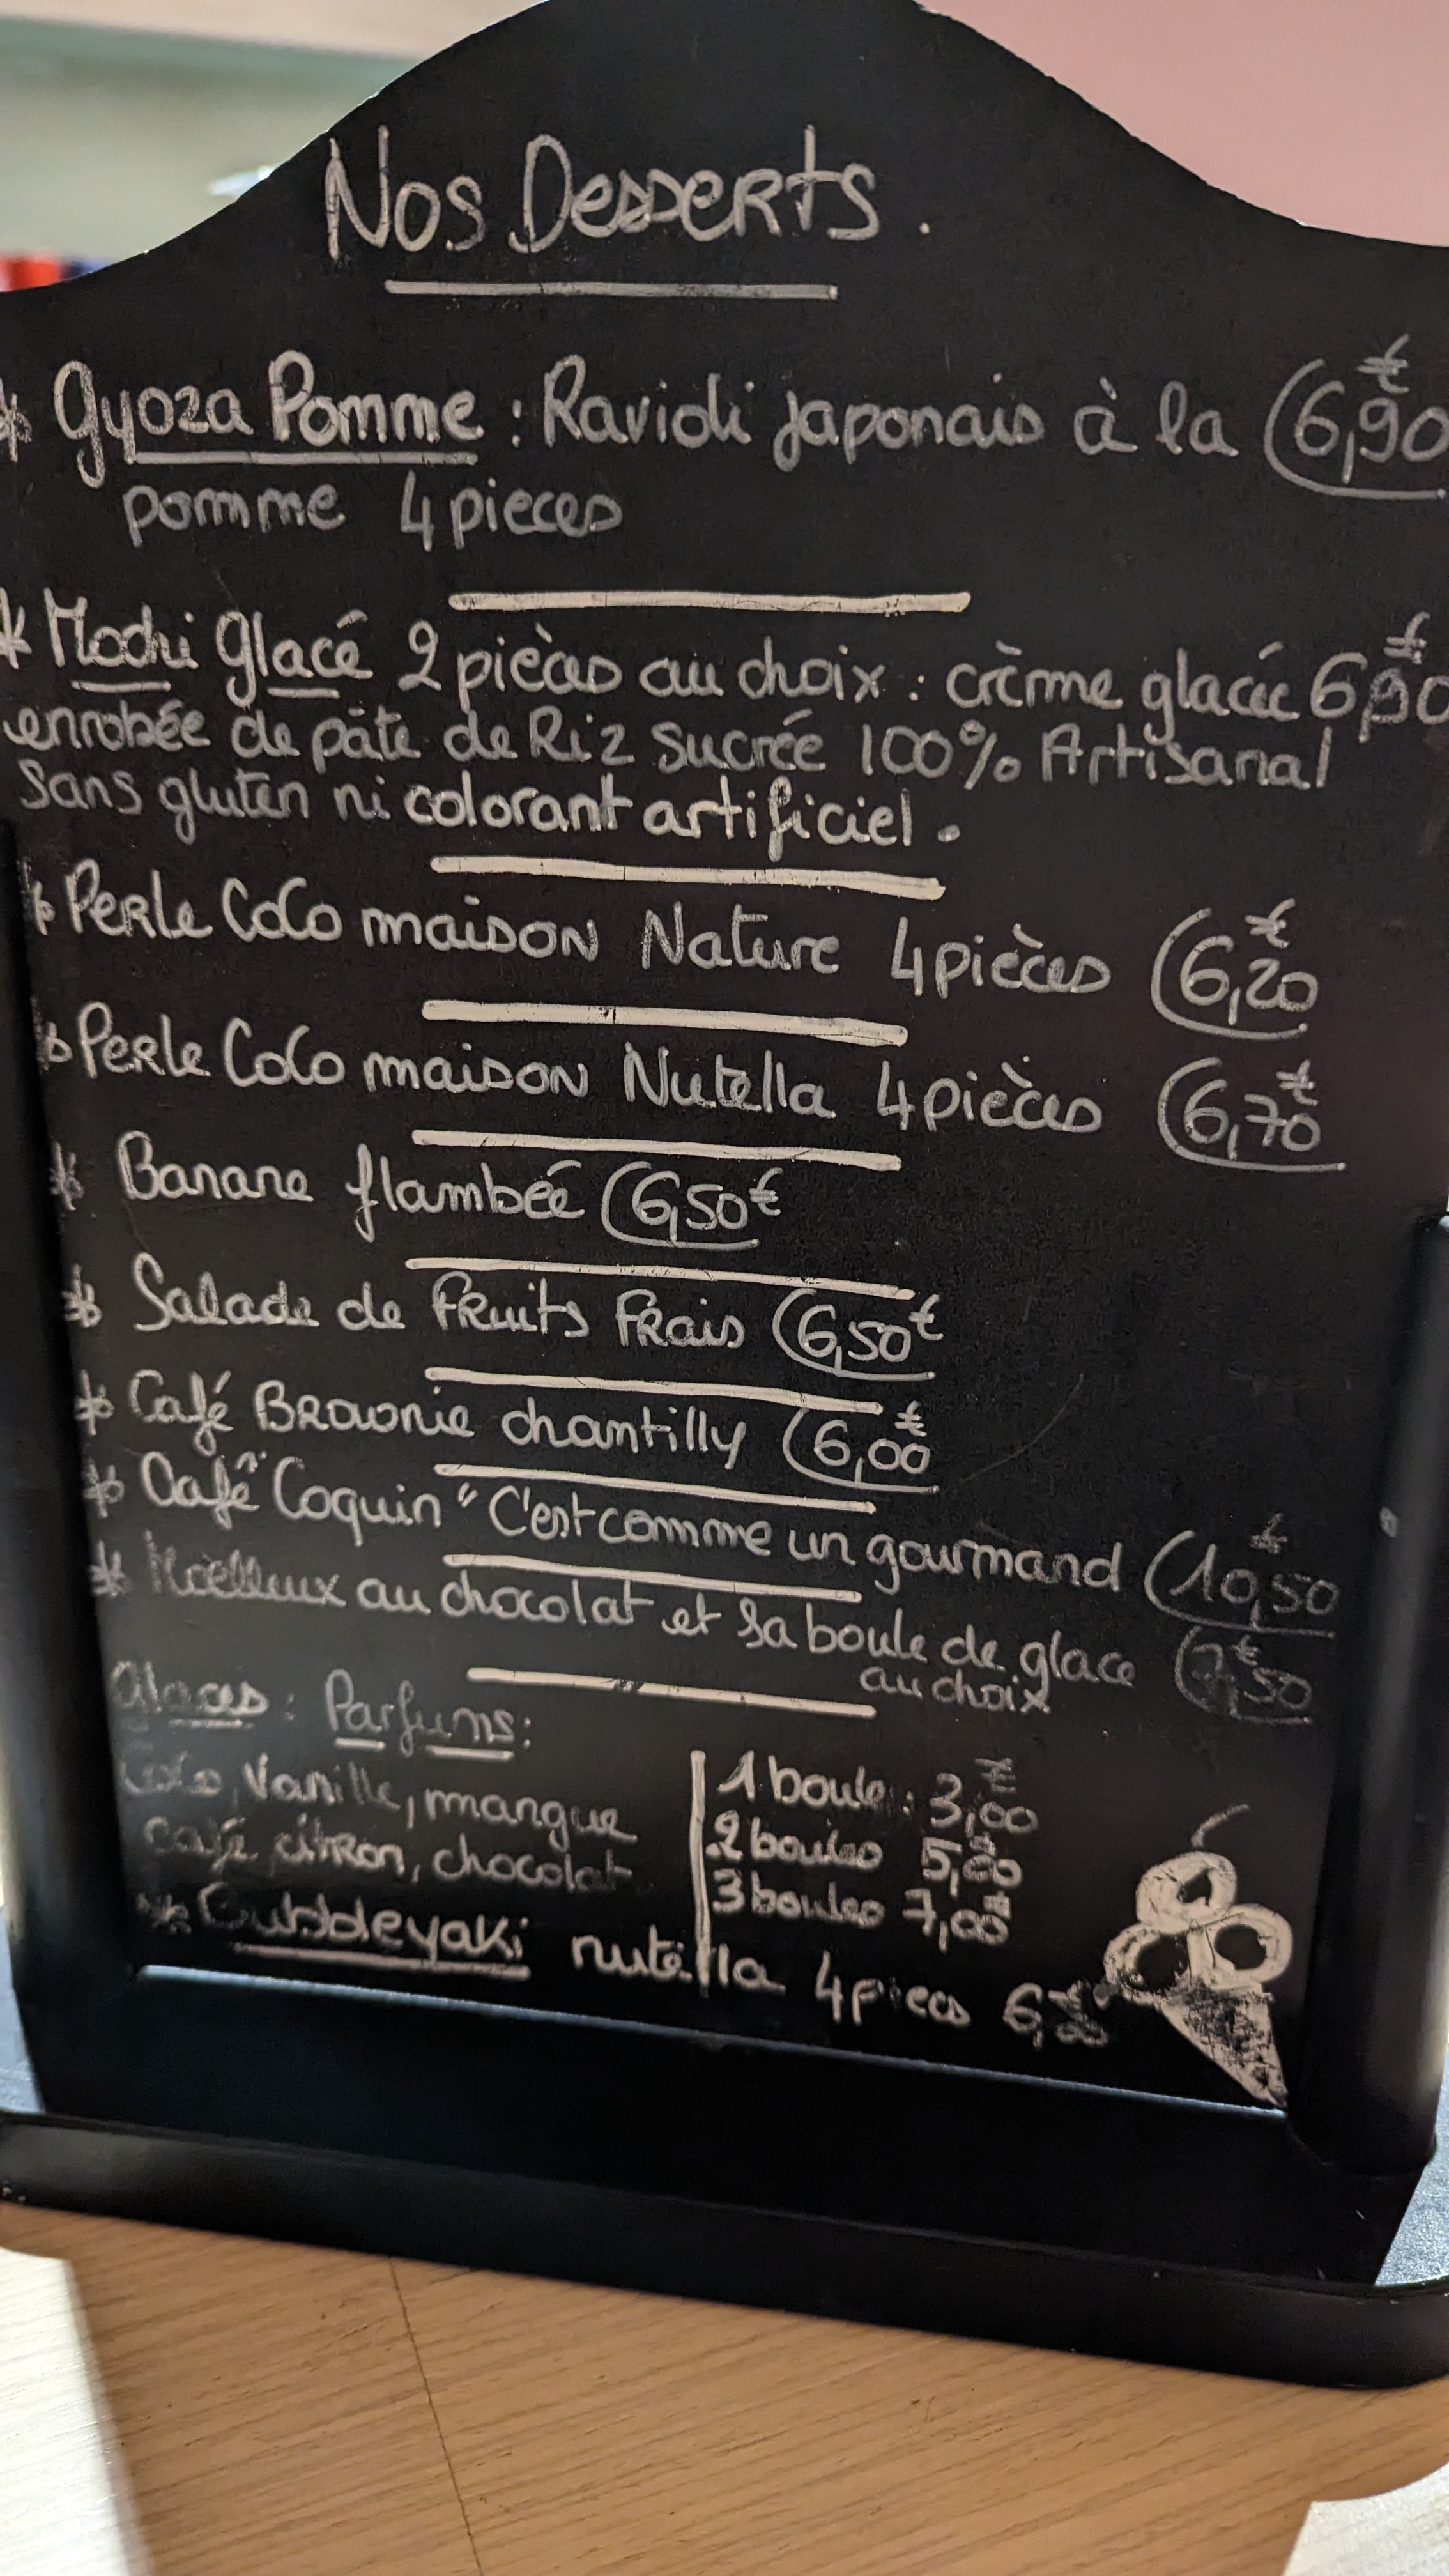 Nos Desserts.
* Gyoza Pomme : Ravioli japonais à la 6,90€
pomme 4 pieces
* Mochi glacé 2 pièces au choix : crème glacée 6,90€
enrobée de pâte de Riz sucrée 100% Artisanal
sans gluten ni colorant artificiel.
* Perle CoCo maison Nature 4 pièces 6,20€
* Perle CoCo maison Nutella 4 pièces 6,70€
* Banane flambée 6,50€
* Salade de Fruits Frais 6,50€
* Café Brownie chantilly 6,00€
* Café "Coquin" C'est comme un gourmand 10,50€
* Moelleux au chocolat et sa boule de glace 7€50
au choix
Glaces : Parfums :
Coco, Vanille, mangue
café, citron, chocolat
1 boule : 3,00€
2 boules 5,00€
3 boules 7,00€
* Bubbleyaki nutella 4 pieces